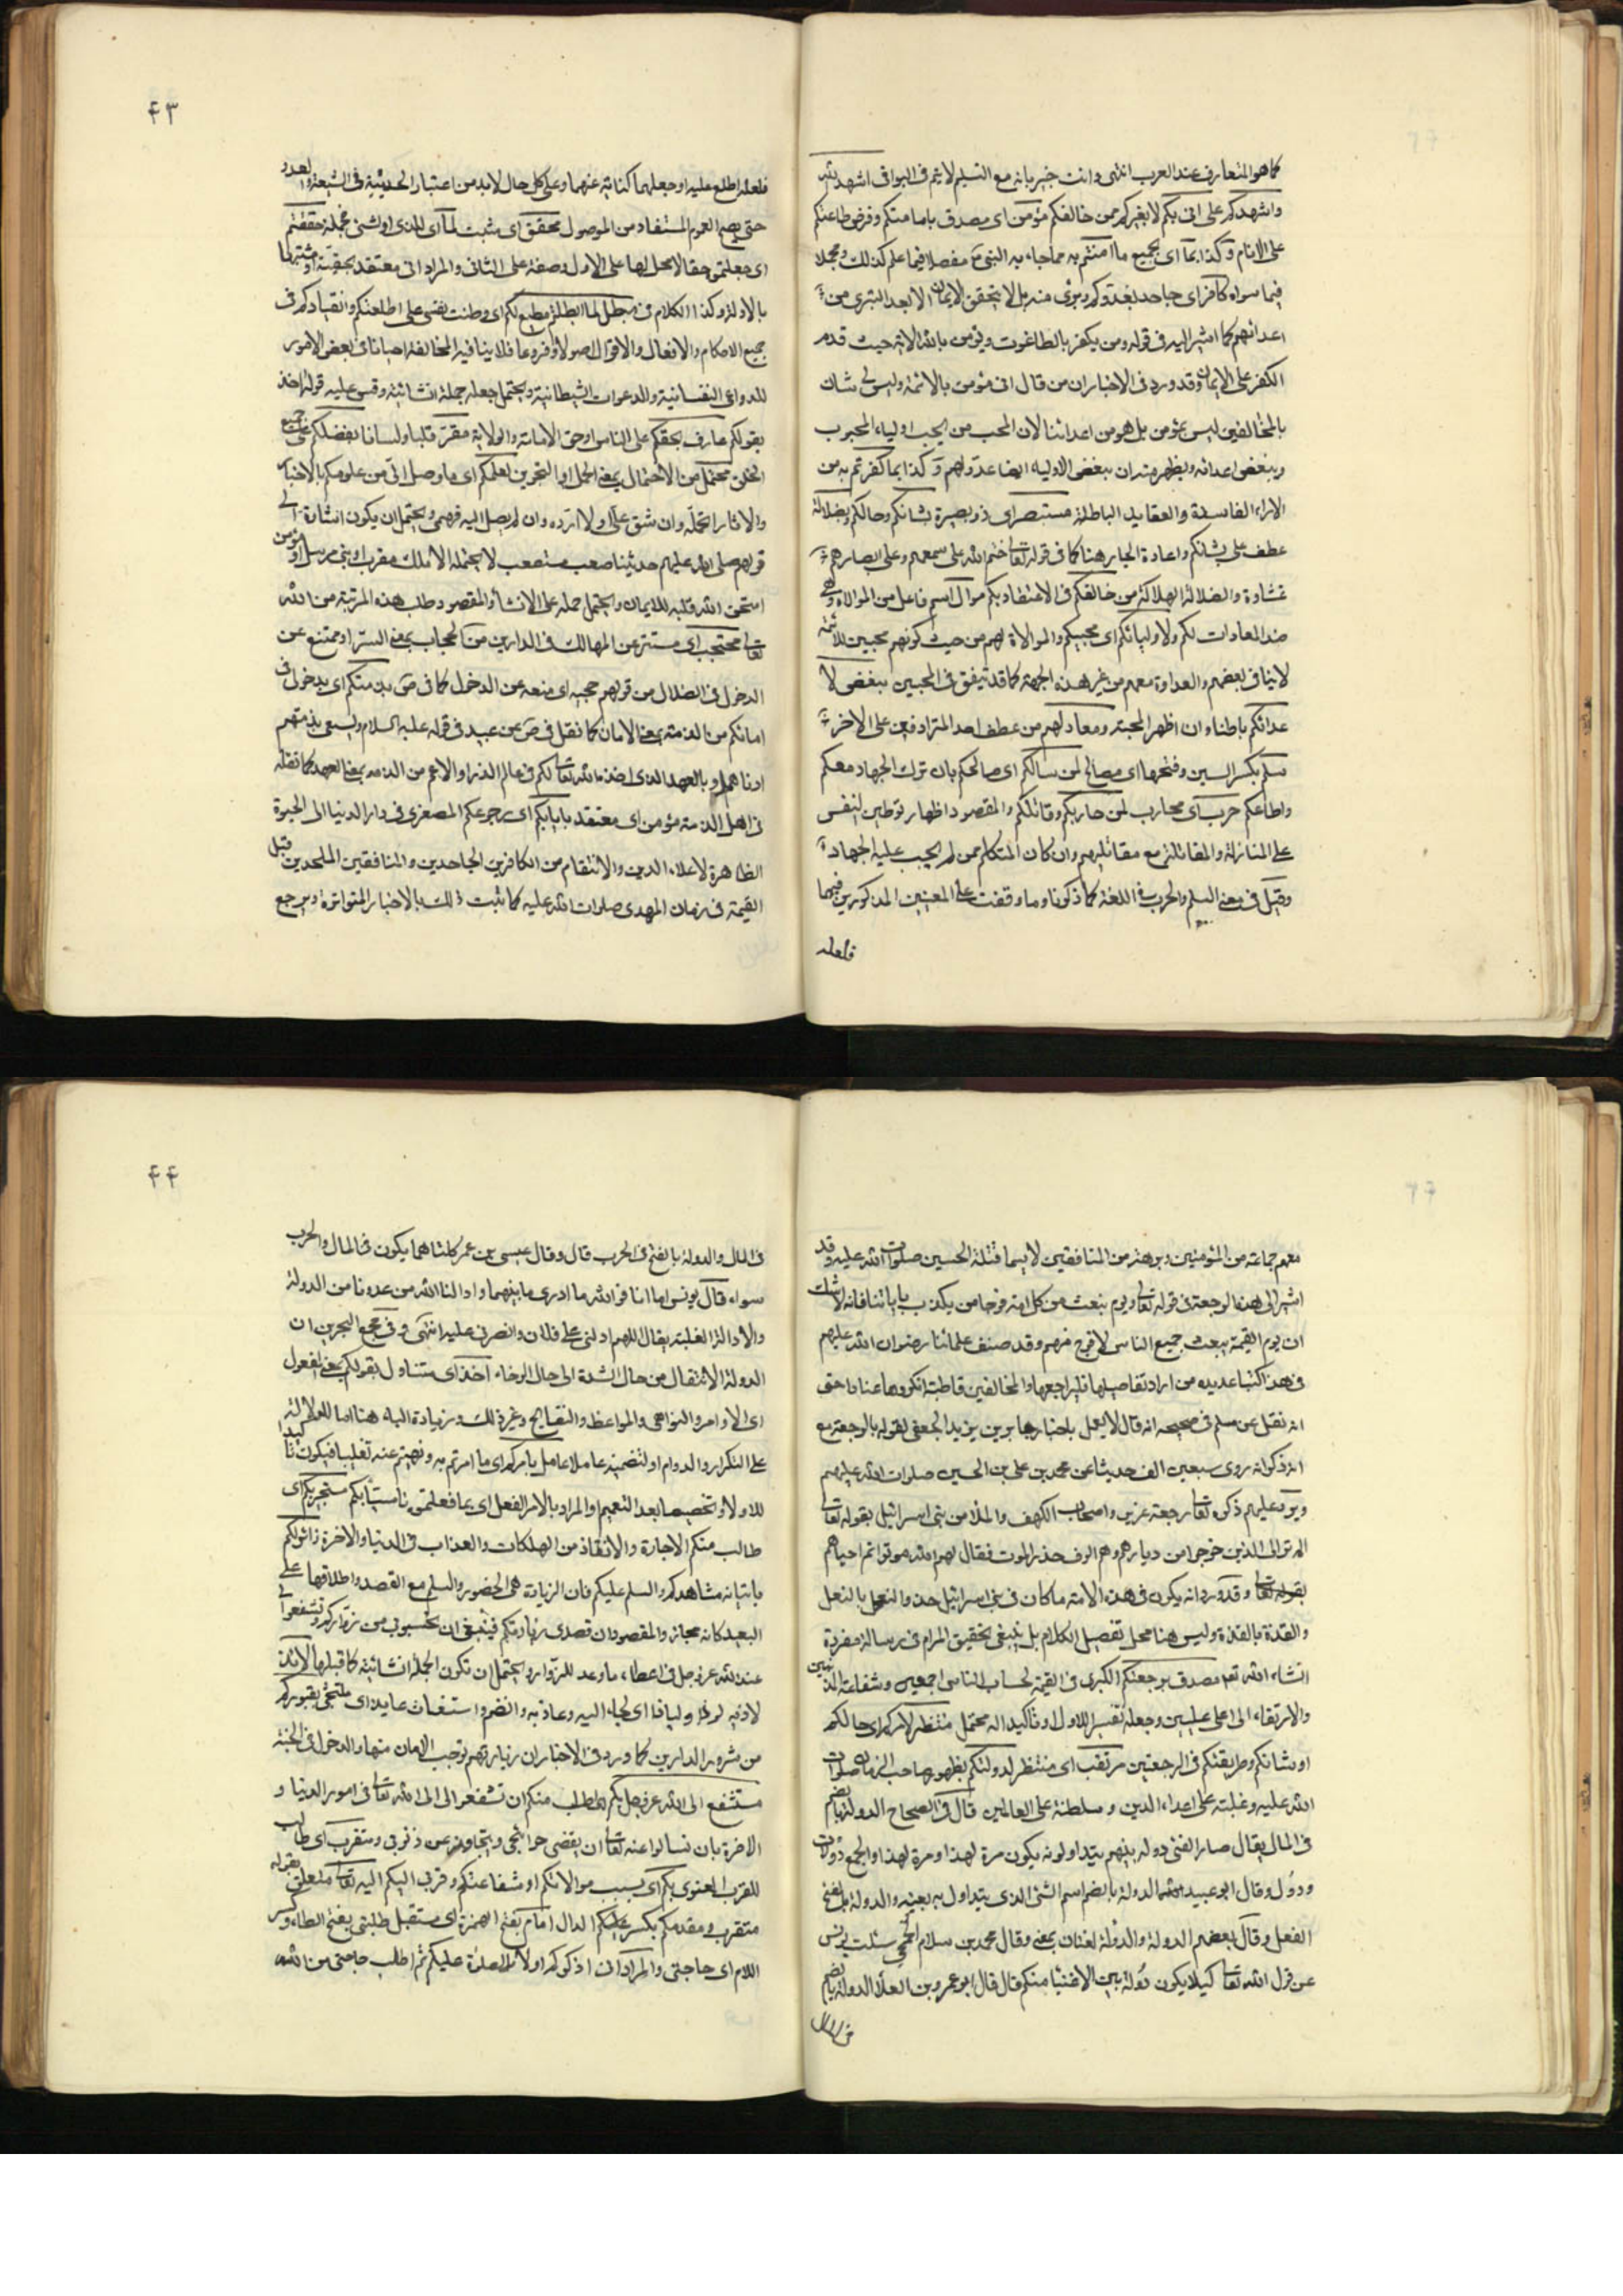 كما هو المتعارف عند العرب انتهى وانت خبير بانه مع التسليم لا يتم فى البواقى اشهد الله
واشهدكم على انى بكم لا بغيركم ممن خالفكم مؤمن اى مصدق بامامتكم وفرض طاعتكم
على الانام وكذا بما اى بجميع ما امنتم به مما جاء به النبى ص مفصلا فيما علم كذلك ومجملا
فيما سواه كافر اى جاحد بعدوكم وبرئ منه بل لا يتحقق الايمان الا بعد التبرى من
اعدائهم كما اشير اليه فى قوله ومن يكفر بالطاغوت ويؤمن بالله الاية حيث قدم
الكفر على الايمان وقد ورد فى الاخبار ان من قال انى مؤمن بالائمة وليس لى شان
بالمخالفين ليس بمؤمن بل هو من اعدائنا لان المحب من يحب اولياء المحبوب
ويبغض اعدائه ويظهر منه ان مبغض الاولياء ايضا عدو لهم وكذا بما كفرتم به من
الاراء الفاسدة والعقايد الباطلة مستبصر اى ذو بصيرة بشانكم وحالكم وبضلالة
عطف على بشانكم واعادة الجار هنا كما فى قوله تعالى ختم الله على سمعهم وعلى ابصارهم
غشاوة والضلالة الهلاكة من خالفكم فى الاعتقاد بكم موال اسم فاعل من الموالاة وهى
ضد المعادات لكم ولاوليائكم اى محبيكم والموالاة لهم من حيث كونهم محبين للائمة
لا ينافى بعضهم والعداوة معهم من غير هذه الجهة كما قد يتفق فى المحبين مبغض لا
عدائكم باطنا وان اظهر المحبة ومعاد لهم من عطف احد المترادفين على الاخر
سلم بكسر السين وفتحها اى مصالح لمن سالمكم اى صالحكم بان ترك الجهاد معكم
واطاعكم حرب اى محارب لمن حاربكم وقاتلكم والمقصود اظهار توطين النفس
على المنازلة والمقاتلة مع مقاتليهم وان كان المتكلم ممن لم يجب عليه الجهاد
وقيل فى معنى السلم والحرب فى اللغة كما ذكرنا وما وقفت على المعنيين المذكورين فيهما
فلعله
۴۳
فلعله اطلع عليه او جعلهما كناية عنهما وعلى كل حال لا بد من اعتبار الحيثية فى الشيعة والعدو
حتى يصح العموم المستفاد من الموصول محقق اى مثبت لما اى للذى او لشئ مجملة حققتم
اى جعلتموه حقا لا محل لها على الاول وصفة على الثانى والمراد انى معتقد بحقيته او مثبتها
بالادلة وكذا الكلام فى مبطل لما ابطلتم مطيع لكم اى وطنت نفسى على اطاعتكم وانقيادكم فى
جميع الاحكام والافعال والاقوال اصولا وفروعا فلا ينافيه المخالفة احيانا فى بعض الامور
للدواعى النفسانية والدعوات الشيطانية ويحتمل جعله جملة انشائية وقس عليه قوله اخذ
بقولكم عارف بحقكم على الناس او حق الامامة والولاية مقر قلبا ولسانا بفضلكم على جميع
الخلق محتمل من الاحتمال بمعنى الحمل او التجويز لعلمكم اى ما وصل الىّ من علومكم بالاخبار
والاثار اتحمله وان شق علىّ او لا ارده وان لم يصل اليه فهمى ويحتمل ان يكون اشارة الى
قولهم صلى الله عليهم حديثنا صعب مستصعب لا يحتمله الا ملك مقرب او نبى مرسل او مؤمن
امتحن الله قلبه للايمان ويحتمل حمله على الانشاء والمقصود طلب هذه المرتبة من الله
تعالى محتجب اى مستتر عن المهالك فى الدارين من الحجاب بمعنى الستر او ممتنع عن
الدخول فى الضلال من قولهم حجبه اى منعه عن الدخول كما فى ص بذمتكم اى بدخولى فى
امانكم من الذمة بمعنى الامان كما نقل فى ص عن عبيد فى قوله عليه السلام ويسعى بذمتهم
ادناهم او بالعهد الذى اخذه الله تعالى لكم فى عالم الذر او الاعم من الذمة بمعنى العهد كما نقله
فى اهل الذمة مؤمن اى معتقد بايابكم اى رجوعكم الصغرى فى دار الدنيا الى الحيوة
الظاهرة لاعلاء الدين والانتقام من الكافرين الجاحدين والمنافقين الملحدين قبل
القيمة فى زمان المهدى صلوات الله عليه كما ثبت ذلك بالاخبار المتواترة ويرجع
معهم جماعة من المؤمنين وبرهة من المنافقين لا سيما قتلة الحسين صلوات الله عليه وقد
اشير الى هذه الرجعة فى قوله تعالى ويوم نبعث من كل امة فوجا ممن يكذب باياتنا فانه لا شك
ان يوم القيمة يبعث جميع الناس لا فوج منهم وقد صنف علمائنا رضوان الله عليهم
فى هذا كتبا عديدة من اراد تفاصيلها فليراجعها والمخالفين قاطبة انكروها عنادا حتى
انه نقل عن مسلم فى صحيحه انه قال لا يعمل باخبار جابر بن يزيد الجعفى لقوله بالرجعة مع
انه ذكر انه روى سبعين الف حديثا عن محمد بن على بن الحسين صلوات الله عليهم
ويرد عليهم ذكره تعالى رجعة عزير واصحاب الكهف والملأ من بنى اسرائيل بقوله تعالى
الم تر الى الذين خرجوا من ديارهم وهم الوف حذر الموت فقال لهم الله موتوا ثم احياهم
بقوله تعالى وقد ورد انه يكون فى هذه الامة ما كان فى بنى اسرائيل حذو النعل بالنعل
والقذة بالقذة وليس هنا محل تفصيل الكلام بل ينبغى تحقيق المرام فى رسالة مفردة
انشاء الله تعم مصدق برجعتكم الكبرى فى القيمة لحساب الناس اجمعين وشفاعة المذنبين
والارتقاء الى اعلى عليين وجعله تفسيرا للاول او تاكيدا له محتمل منتظر لامركم اى حالكم
او شانكم وطريقتكم فى الرجعتين مرتقب اى منتظر لدولتكم بظهور صاحب الزمان صلوات
الله عليه وغلبته على اعداء الدين وسلطنة على العالمين قال فى الصحاح الدولة بالضم
فى المال يقال صار الفئ دولة بينهم يتداولونه يكون مرة لهذا ومرة لهذا والجمع دولات
ودول وقال ابو عبيد الدولة بالضم اسم الشئ الذى يتداول به بعينه والدولة بالفتح
الفعل وقال بعضهم الدولة والدولة لغتان بمعنى وقال محمد بن سلام الجمحى سئلت يونس
عن قول الله تعالى كيلا يكون دولة بين الاغنياء منكم قال قال ابو عمرو بن العلاء الدولة بالضم
فى المال
۴۴
فى المال والدولة بالفتح فى الحرب قال وقال عيسى بن عمر كلتاهما يكون فى المال والحرب
سواء قال يونس اما انا فوالله ما ادرى ما بينهما وادالنا الله من عدونا من الدولة
والادالة الغلبة يقال اللهم ادلنى على فلان وانصرنى عليه انتهى وفى مجمع البحرين ان
الدولة الانتقال من حال الشدة الى حال الرخاء اخذ اى متناول بقولكم بمعنى المفعول
اى الاوامر والنواهى والمواعظ والنصايح وغير ذلك وزيادة الباء هنا اما للدلالة
على التكرار والدوام او لتضمينه عاملا عامل بامركم اى ما امرتم به ونهيتم عنه تغليبا فيكون تاكيدا
للاول او تخصيصا بعد التعميم والمراد بالامر الفعل اى بما فعلتموه تاسيا بكم مستجير بكم اى
طالب منكم الاجارة والانقاذ من الهلكات والعذاب فى الدنيا والاخرة زائر لكم
باتيانه مشاهدكم والسلم عليكم فان الزيارة هى الحضور والسلم مع القصد واطلاقها على
البعيد كانه مجاز والمقصود ان قصدى زيارتكم فينبغى ان تحسبونى من زواركم وتشفعوا لى
عند الله عز وجل فى اعطاء ما وعد للزوار ويحتمل ان تكون الجملة انشائية كما قبلها لائذ
لاذ به لوذا ولياذا اى لجاء اليه وعاذ به وانضم واستغاث عايذ اى ملتجئ بقبوركم
من شرور الدارين كما ورد فى الاخبار ان زيارتهم توجب الامان منها والدخول فى الجنة
مستشفع الى الله عز وجل بكم اى اطلب منكم ان تشفعوا لى الى الله تعالى فى امور الدنيا و
الاخرة بان تسالوا عنه تعالى ان يقضى حوائجى ويتجاوز عن ذنوبى ومتقرب اى طالب
للقرب المعنوى بكم اى بسبب موالاتكم او شفاعتكم وقربى اليكم اليه تعالى متعلق بقوله
متقرب ومقدمكم بكسر الدال امام بفتح الهمزة اى مستقبل طلبتى بفتح الطاء وكسر
اللام اى حاجتى والمراد انى اذكركم اولا بالصلوة عليكم ثم اطلب حاجتى من الله